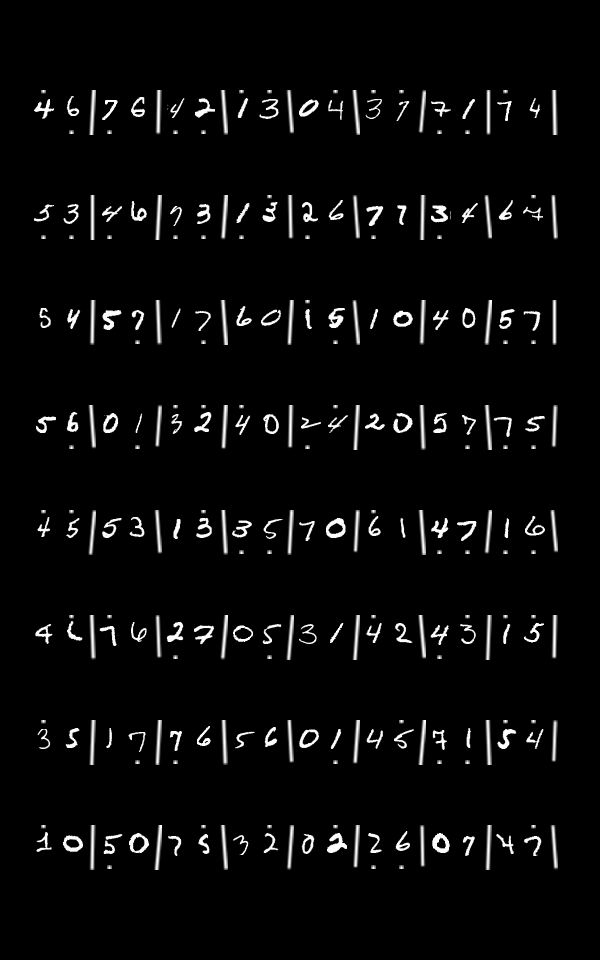 4 6 | 7 6 | 4 2 | 1 3 | 0 4 | 3 7 | 7 1 | 7 4 |
5 3 | 4 6 | 7 3 | 1 3 | 2 6 | 7 7 | 3 4 | 6 7 |
5 4 | 5 7 | 1 7 | 6 0 | 1 5 | 1 0 | 4 0 | 5 7 |
5 6 | 0 1 | 3 2 | 4 0 | 2 4 | 2 0 | 5 7 | 7 5 |
4 5 | 5 3 | 1 3 | 3 5 | 7 0 | 6 1 | 4 7 | 1 6 |
4 6 | 7 6 | 2 7 | 0 5 | 3 1 | 4 2 | 4 3 | 1 5 |
3 5 | 1 7 | 7 6 | 5 6 | 0 1 | 4 5 | 7 1 | 5 4 |
1 0 | 5 0 | 7 5 | 3 2 | 0 2 | 2 6 | 0 7 | 4 7 |